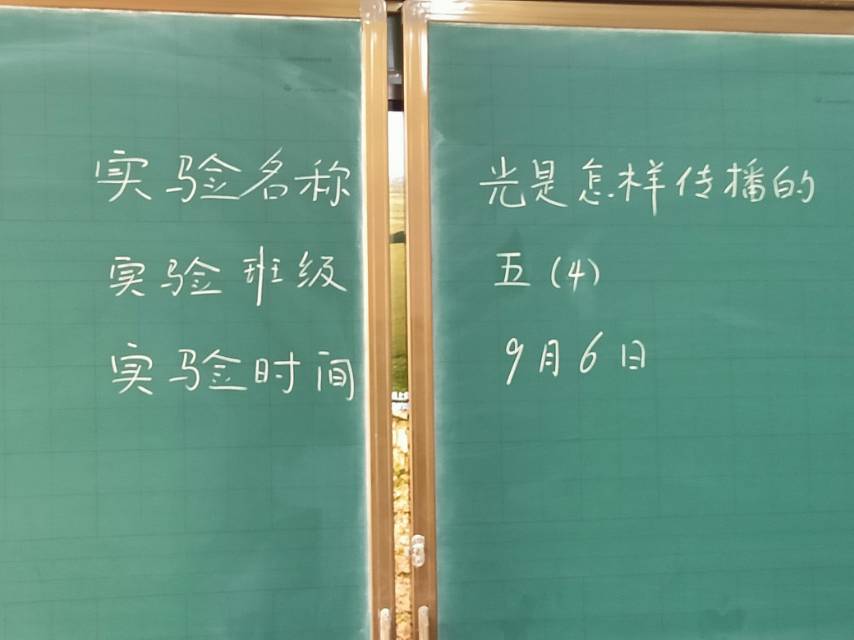 实验名称 光是怎样传播的
实验班级 五(4)
实验时间 9月6日